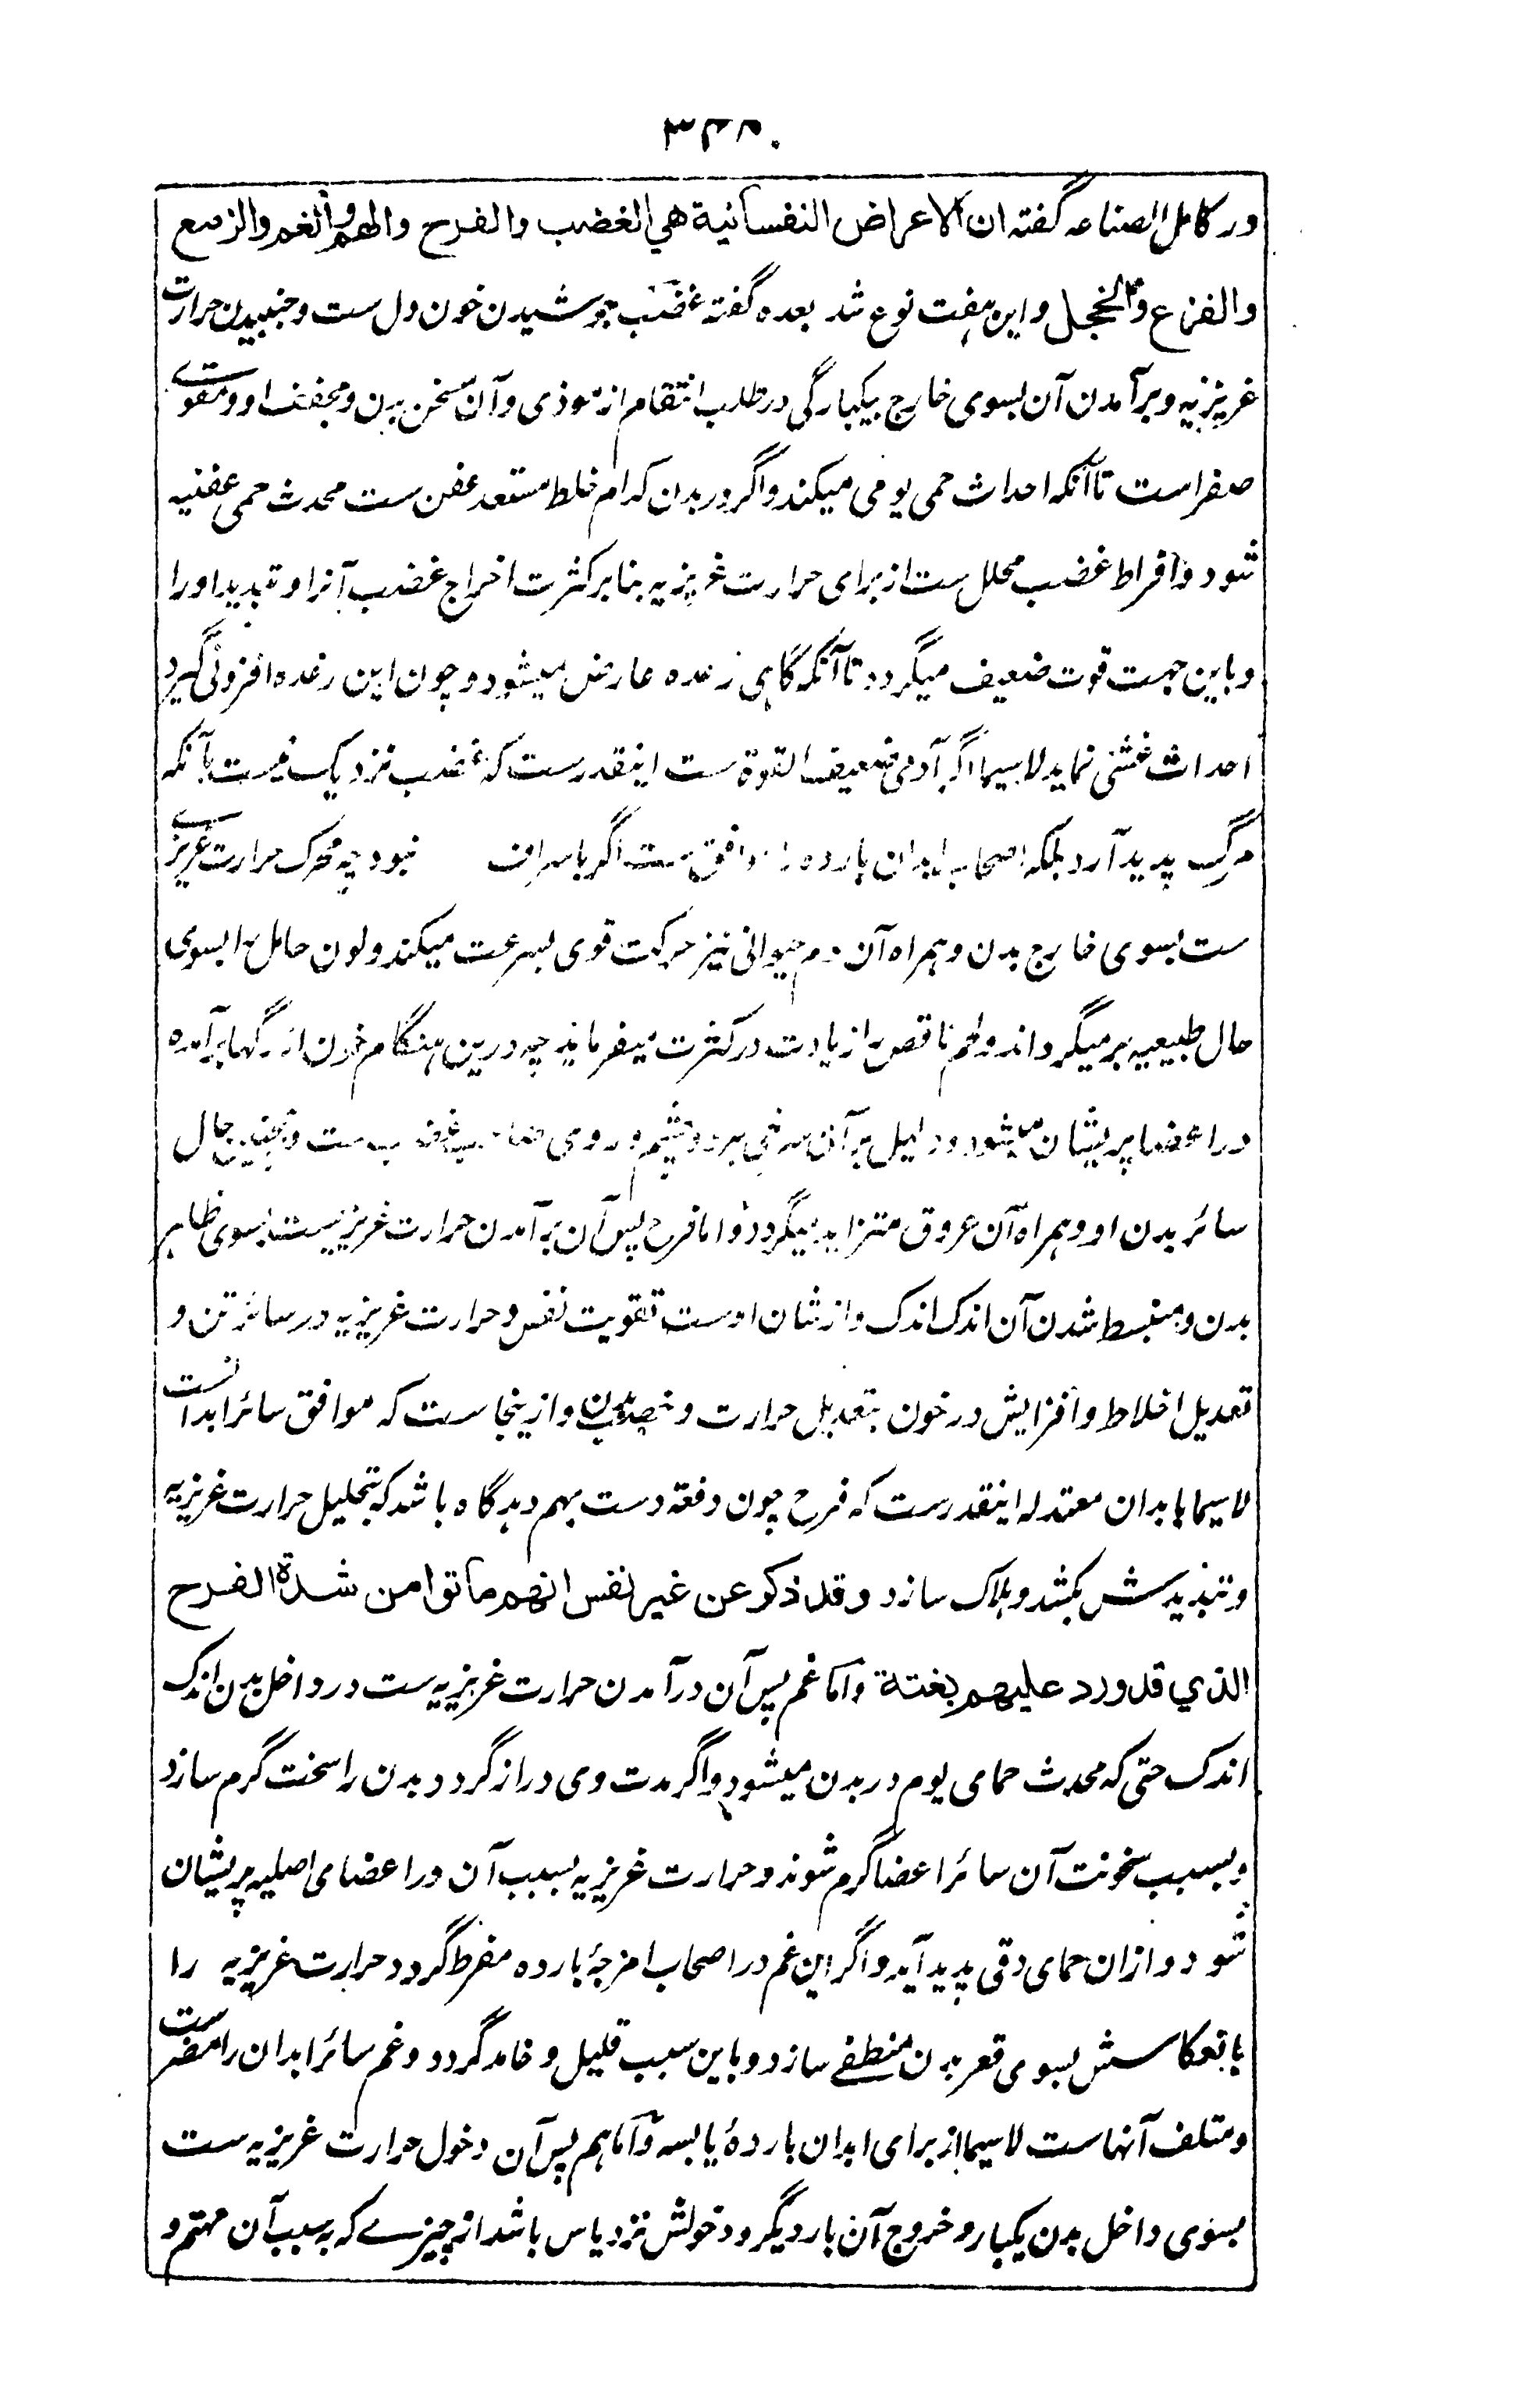 ۳۴۵
در کامل الصناعه گفته ان الاعراض النفسانية هي الغضب والفرح والهم والغم والزمع
والفزع والخجل و این هفت نوع شد بعده گفته غضب جوشیدن خون دل ست و جنبیدن حرارت
غریزیه و برآمدن آن بسوی خارج بیکبارگی در طلب انتقام از موذی و آن مسخن بدن و مجفف او و مقوے
صفراست تا آنکه احداث حمی یومی میکند و اگر در بدن کدام خلط مستعد عفن ست محدث حمی عفنیه
شود و افراط غضب محلل ست از برای حرارت غریزیه بنابر کثرت اخراج غضب آنرا و تبدید او را
و باین جهت قوت ضعیف میگردد تا آنکه گاهی رعده عارض میشود و چون این رعده افزونی گیرد
احداث غشی نماید لاسیما اگر آدمی ضعیف القوة ست اینقدر ست که غضب نزدیک نیست بآنکه
مرگ پدید آرد بلکه اصحاب ابدان بارده را موافق ست اگر باسراف نبود چه محرک حرارت غریزے
ست بسوی خارج بدن و همراه آن دم حیوانی نیز حرکت قوی بسرعت میکند و لون حامل را بسوی
حال طبیعیه برمیگرداند و لحم ناقص را زیادت در کثرت میفرماید چه درین هنگام خون از رگها برآمده
در اعضا پریشان میشود و دلیل بر آن سرخی هر دو چشم و روی صاحب غضب ست و همچنین حال
سائر بدن او و همراه آن عروق متزاید میگردد و اما فرح پس آن برآمدن حرارت غریزیست بسوی ظاهر
بدن و منبسط شدن آن اندک اندک و از شان اوست تقویت نفس و حرارت غریزیه در سائر تن و
تعدیل اخلاط و افزایش در خون بتعدیل حرارت و خصب بدن و ازینجاست که موافق سائر ابدانست
لاسیما بابدان معتدله اینقدر ست که فرح چون دفعة دست بهم دهد گاه باشد که بتحلیل حرارت غریزیه
و تبدیدش بکشد و هلاک سازد وقد ذكر عن غير نفس انهم ماتوا من شدة الفرح
الذي قد ورد عليهم بغتة و اما غم پس آن درآمدن حرارت غریزیه ست در داخل بدن اندک
اندک حتی که محدث حمای یوم در بدن میشود و اگر مدت وی دراز گردد بدن را سخت گرم سازد
و بسبب سخونت آن سائر اعضا گرم شوند و حرارت غریزیه بسبب آن در اعضای اصلیه پریشان
شود و ازان حمای دقی پدید آید و اگر این غم در اصحاب امزجۀ بارده مفرط گردد حرارت غریزیه را
بانعکاسش بسوی قعر بدن منطفے سازد و باین سبب قلیل و خامد گردد و غم سائر ابدان را مضر ست
و متلف آنهاست لاسیما از برای ابدان باردۀ یابسه و اما هم پس آن دخول حرارت غریزیه ست
بسوی داخل بدن یکبار و خروج آن بار دیگر و دخولش نزد یاس باشد از چیزے که به سبب آن مهتم و